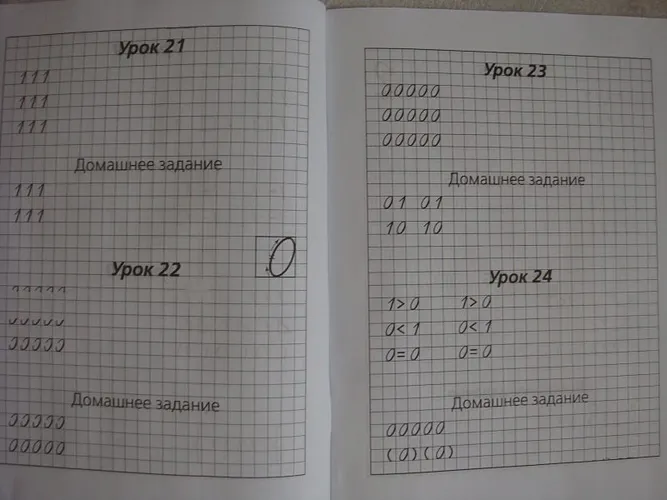 Урок 21
1 1 1
1 1 1
1 1 1
Домашнее задание
1 1 1
1 1 1
Урок 22
0
0 0 0 0 0
Домашнее задание
0 0 0 0 0
0 0 0 0 0
Урок 23
0 0 0 0 0
0 0 0 0 0
0 0 0 0 0
Домашнее задание
0 1 0 1
1 0 1 0
Урок 24
1 > 0 1 > 0
0 < 1 0 < 1
0 = 0 0 = 0
Домашнее задание
0 0 0 0 0
( 0 ) ( 0 )